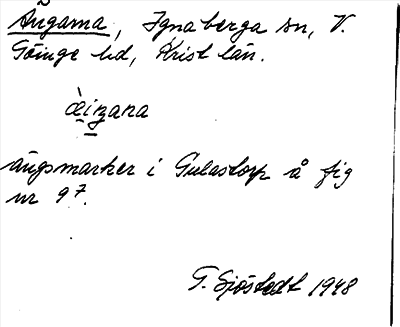 Ängarna, Ignaberga sn, V.
Göinge hd, Krist län.
ängsmarker i Gulastorp å fig
nr 97.
G. Sjöstedt 1948